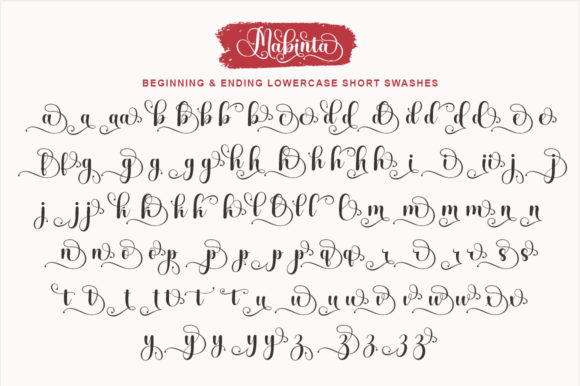 Mabinta
BEGINNING & ENDING LOWERCASE SHORT SWASHES
a a a a b b b b b d d d d d d
g g g g g h h h h h h i i i i j j
j j j k k k k k l l l l l m m m m n n
n n o o p p p p p q q r r r s s
t t t t t t t u u u u
y y y y y z z z z